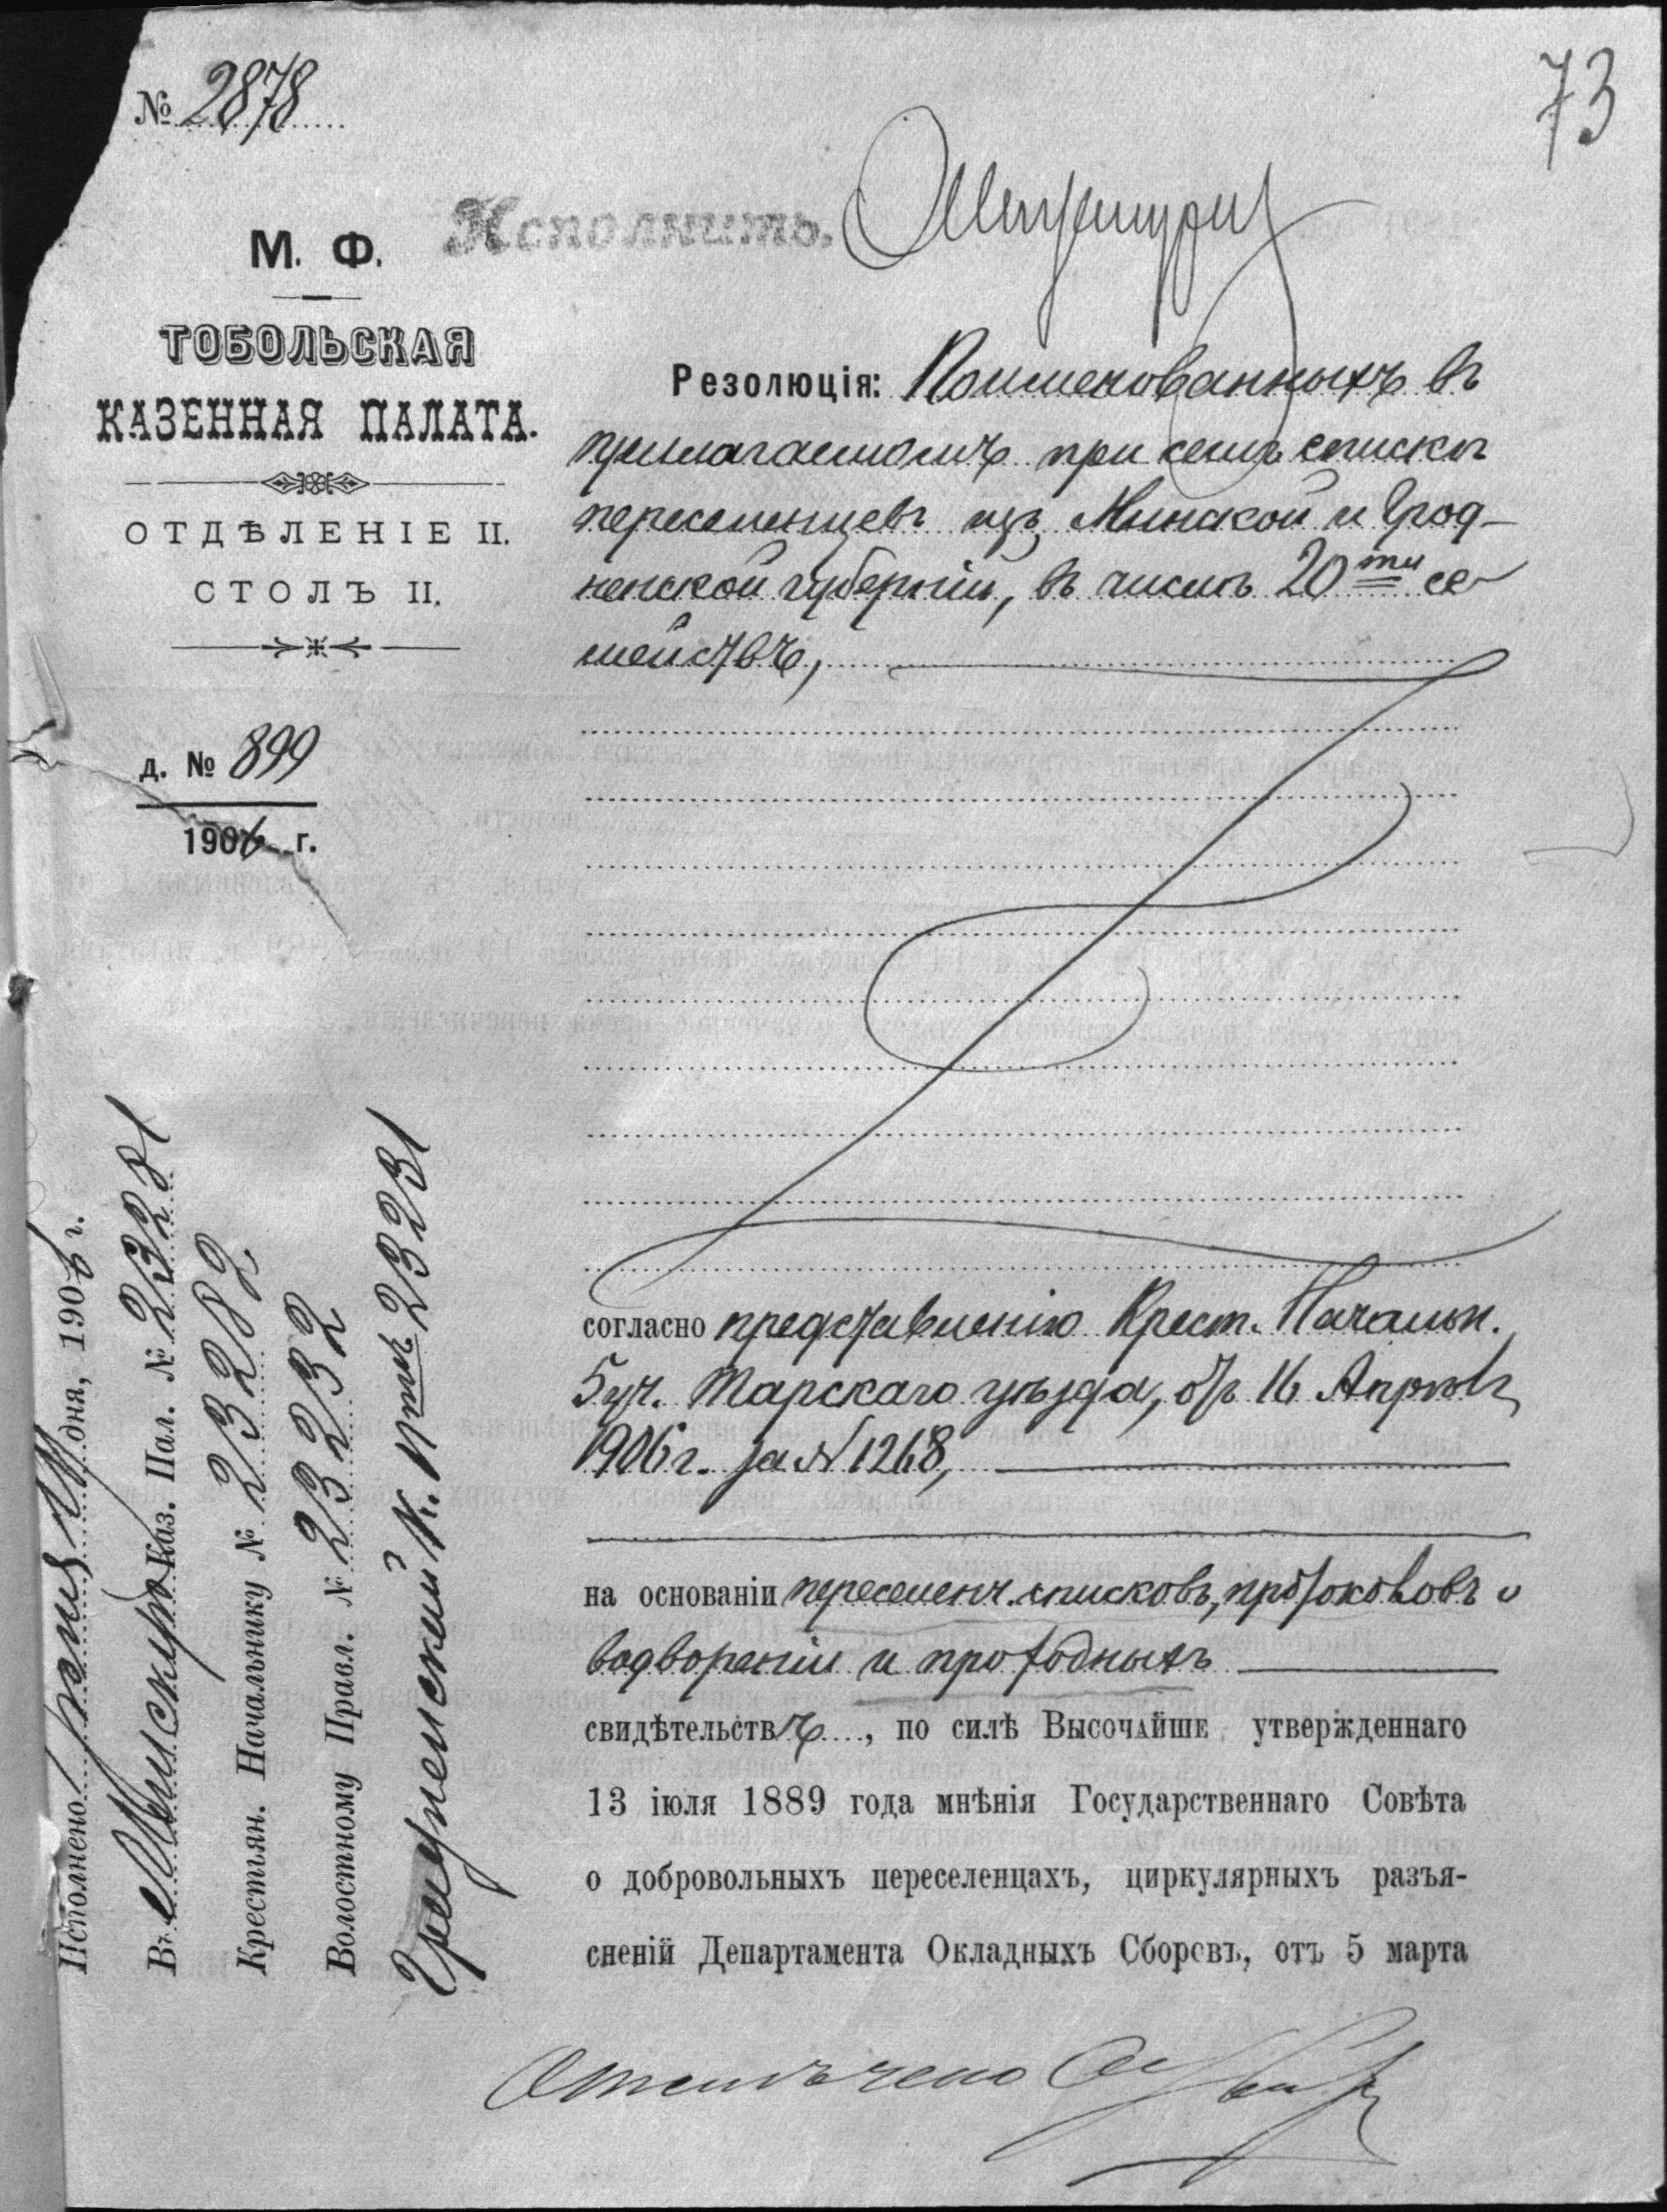 № 2878
73
Исполнить.
М. Ф.
ТОБОЛЬСКАЯ
КАЗЕННАЯ ПАЛАТА.
ОТДѢЛЕНІЕ II.
СТОЛЪ II.
д. № 899
1906 г.
Резолюція: Поименованныхъ въ
прилагаемомъ при семъ списке
переселенцевъ изъ Минской и Грод-
ненской губерніи, въ числѣ 20ти се-
мействъ,
согласно представленію Крест. Начальн.
5 уч. Тарскаго уѣзда, отъ 16 Апрѣля
1906 г. за № 1268,
на основаніи переселенч. списковъ, протоколовъ о
водвореніи и проходныхъ
свидѣтельствъ, по силѣ Высочайше утвержденнаго
13 іюля 1889 года мнѣнія Государственнаго Совѣта
о добровольныхъ переселенцахъ, циркулярныхъ разъя-
сненій Департамента Окладныхъ Сборовъ, отъ 5 марта
Отмѣчено
Исполнено дня, 1906 г.
Въ Минскую Каз. Пал. № 23281
Крестьян. Начальнику № 23282
Волостному Правл. № 23232
Гродненской К. Птѣ 23231